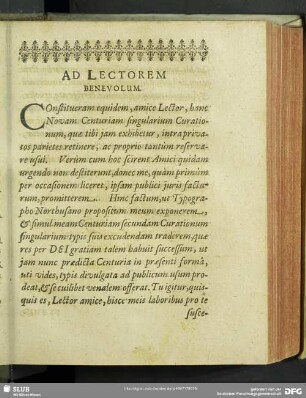 AD LECTOREM
BENEVOLUM.
COnstitueram equidem, amice Lector, hanc
Novam Centuriam singularium Curatio-
num, quæ tibi jam exhibetur, intra priva-
tos parietes retinere, ac proprio tantùm reserva-
re usui. Verùm cum hoc scirent Amici quidam
urgendo non destiterunt, donec me, quàm primùm
per occasionem liceret, ipsam publici juris factu-
rum, promitterem. Hinc factum, ut Typogra-
pho Northusano propositum meum exponerem,
& simul meam Centuriam secundam Curationum
singularium typis suis excudendam traderem, quæ
res per DEI gratiam talem habuit successum, ut
jam nunc prædicta Centuria in præsenti formâ,
uti vides, typis divulgata ad publicum usum pro-
deat, & se cuilibet venalem offerat. Tu igitur, quis-
quis es, Lector amice, hisce meis laboribus pro te
susce-
SLUB
DFG